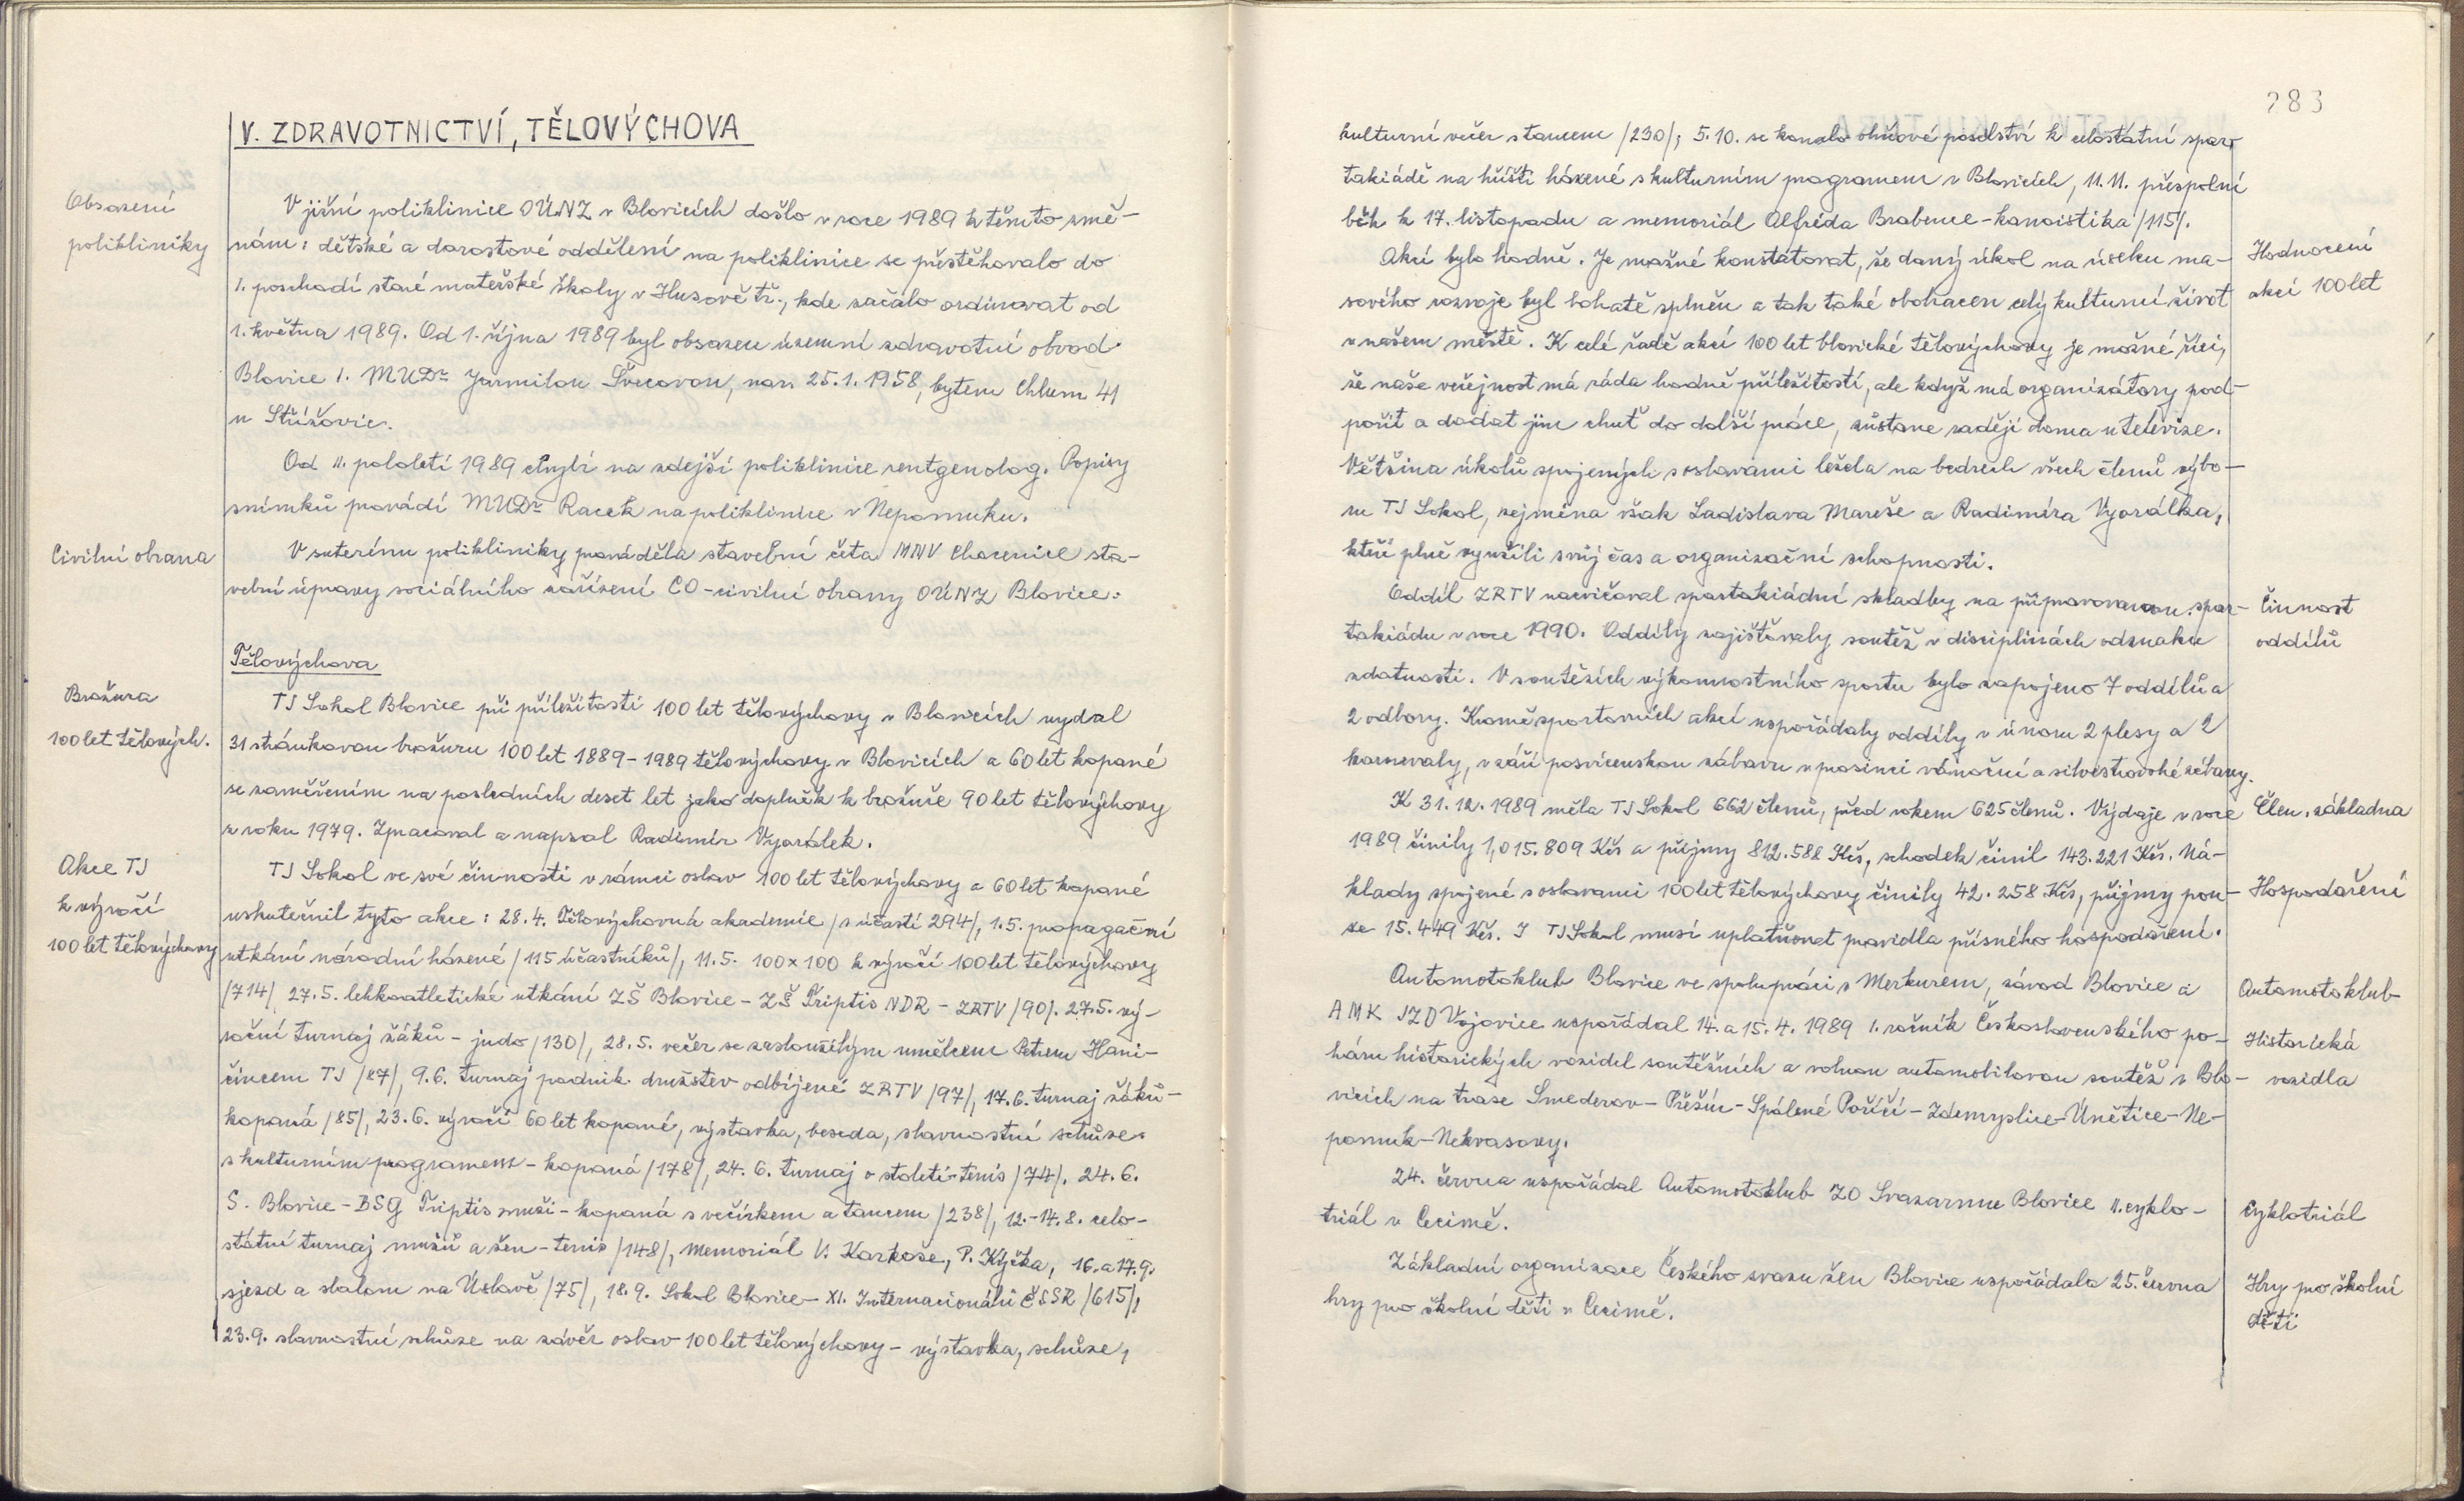 V. ZDRAVOTNICTVÍ, TĚLOVÝCHOVA
Obsazení
polikliniky
V jižní poliklinice OÚNZ v Blovicích došlo v roce 1989 k těmto změ-
nám: dětské a dorostové oddělení na poliklinice se přestěhovalo do
1. poschodí staré mateřské školy v Husově tř., kde začalo ordinovat od
1. května 1989. Od 1. října 1989 byl obsazen územní zdravotní obvod
Blovice 1. MUDr Jarmilou Švecovou, nar. 25.1.1958, bytem Chlum 41
u Střížovic.
Od II. pololetí 1989 chybí na zdejší poliklinice rentgenolog. Popisy
snímků provádí MUDr Racek na poliklinice v Nepomuku.
Civilní obrana
V suterénu polikliniky prováděla stavební četa MNV Chocenice sta-
vební úpravy sociálního zařízení CO-civilní obrany OÚNZ Blovice.
Tělovýchova
Brožura
100 let tělových.
TJ Sokol Blovice při příležitosti 100 let tělovýchovy v Blovicích vydal
31 stránkovou brožuru 100 let 1889-1989 tělovýchovy v Blovicích a 60 let kopané
se zaměřením na posledních deset let jako doplněk k brožuře 90 let tělovýchovy
z roku 1979. Zpracoval a napsal Radimír Vyorálek.
Akce TJ
k výročí
100 let tělovýchovy
TJ Sokol ve své činnosti v rámci oslav 100 let tělovýchovy a 60 let kopané
uskutečnil tyto akce: 28.4. Tělovýchovná akademie /s účastí 294/, 1.5. propagační
utkání národní házené /115 účastníků/, 11.5. 100x100 k výročí 100 let tělovýchovy
/714/ 27.5. lehkoatletické utkání ZŠ Blovice - ZŠ Triptis NDR - ZRTV /90/. 27.5. vý-
roční turnaj žáků - judo /130/, 28.5. večer se zasloužilým umělcem Petrem Hani-
čincem TJ /87/, 9.6. turnaj podnik. družstev odbíjené ZRTV /97/, 17.6. turnaj žáků-
kopaná /85/, 23.6. výročí 60 let kopané, výstavka, beseda, slavnostní schůze
s kulturním programem - kopaná /178/, 24.6. turnaj o století - tenis /74/. 24.6.
S. Blovice - BSG Triptis muži - kopaná s večírkem a tancem /238/, 12.-14.8. celo-
státní turnaj mužů a žen - tenis /148/, memoriál V. Karkoše, P. Kyčka, 16. a 17.9.
sjezd a slalom na Úslavě /75/, 18.9. Sokol Blovice - XI. Internacionálů ČSSR /615/,
23.9. slavnostní schůze na závěr oslav 100 let tělovýchovy - výstavka, schůze,
283
kulturní večer s tancem /230/, 5.10. se konalo ohňové poselství k celostátní spar-
takiádě na hřišti házené s kulturním programem v Blovicích, 11.11. přespolní
běh k 17. listopadu a memoriál Alfréda Brabence - kanoistika /115/.
Hodnocení
akcí 100 let
Akcí bylo hodně. Je možné konstatovat, že daný úkol na úseku ma-
sového rozvoje byl bohatě splněn a tak také obohacen celý kulturní život
v našem městě. K celé řadě akcí 100 let blovické tělovýchovy je možné říci,
že naše veřejnost má ráda hodně příležitostí, ale když má organizátory pod-
pořit a dodat jim chuť do další práce, zůstane raději doma u televize.
Většina úkolů spojených s oslavami ležela na bedrech všech členů výbo-
ru TJ Sokol, zejména však Ladislava Mareše a Radimíra Vyorálka,
kteří plně využili svůj čas a organizační schopnosti.
Činnost
oddílů
Oddíl ZRTV nacvičoval spartakiádní skladby na připravovanou spar-
takiádu v roce 1990. Oddíly zajišťovaly soutěž v disciplinách odznaku
zdatnosti. V soutěžích výkonnostního sportu bylo zapojeno 7 oddílů a
2 odbory. Kromě sportovních akcí uspořádaly oddíly v únoru 2 plesy a 2
karnevaly, v září posvícenskou zábavu v prosinci vánoční a silvestrovské zábavy.
Člen. základna
K 31.12.1989 měla TJ Sokol 662 členů, před rokem 625 členů. Výdaje v roce
1989 činily 1,015.809 Kčs a příjmy 812.588 Kčs, schodek činil 143.221 Kčs. Ná-
Hospodaření
klady spojené s oslavami 100 let tělovýchovy činily 42.258 Kčs, příjmy pou-
ze 15.449 Kčs. I TJ Sokol musí uplatňovat pravidla přísného hospodaření.
Automotoklub
Historická
vozidla
Automotoklub Blovice ve spolupráci s Merkurem, závod Blovice a
AMK JZD Vojovice uspořádal 14. a 15.4.1989 1. ročník Československého po-
háru historických vozidel soutěžních a volnou automobilovou soutěž v Blo-
vicích na trase Smederov - Přešín - Spálené Poříčí - Zdemyslice - Únětice - Ne-
pomuk - Nekvasovy.
Cyklotriál
24. června uspořádal Automotoklub ZO Svazarmu Blovice II. cyklo-
triál v Cecimě.
Hry pro školní
děti
Základní organizace Českého svazu žen Blovice uspořádala 25. června
hry pro školní děti v Cecimě.